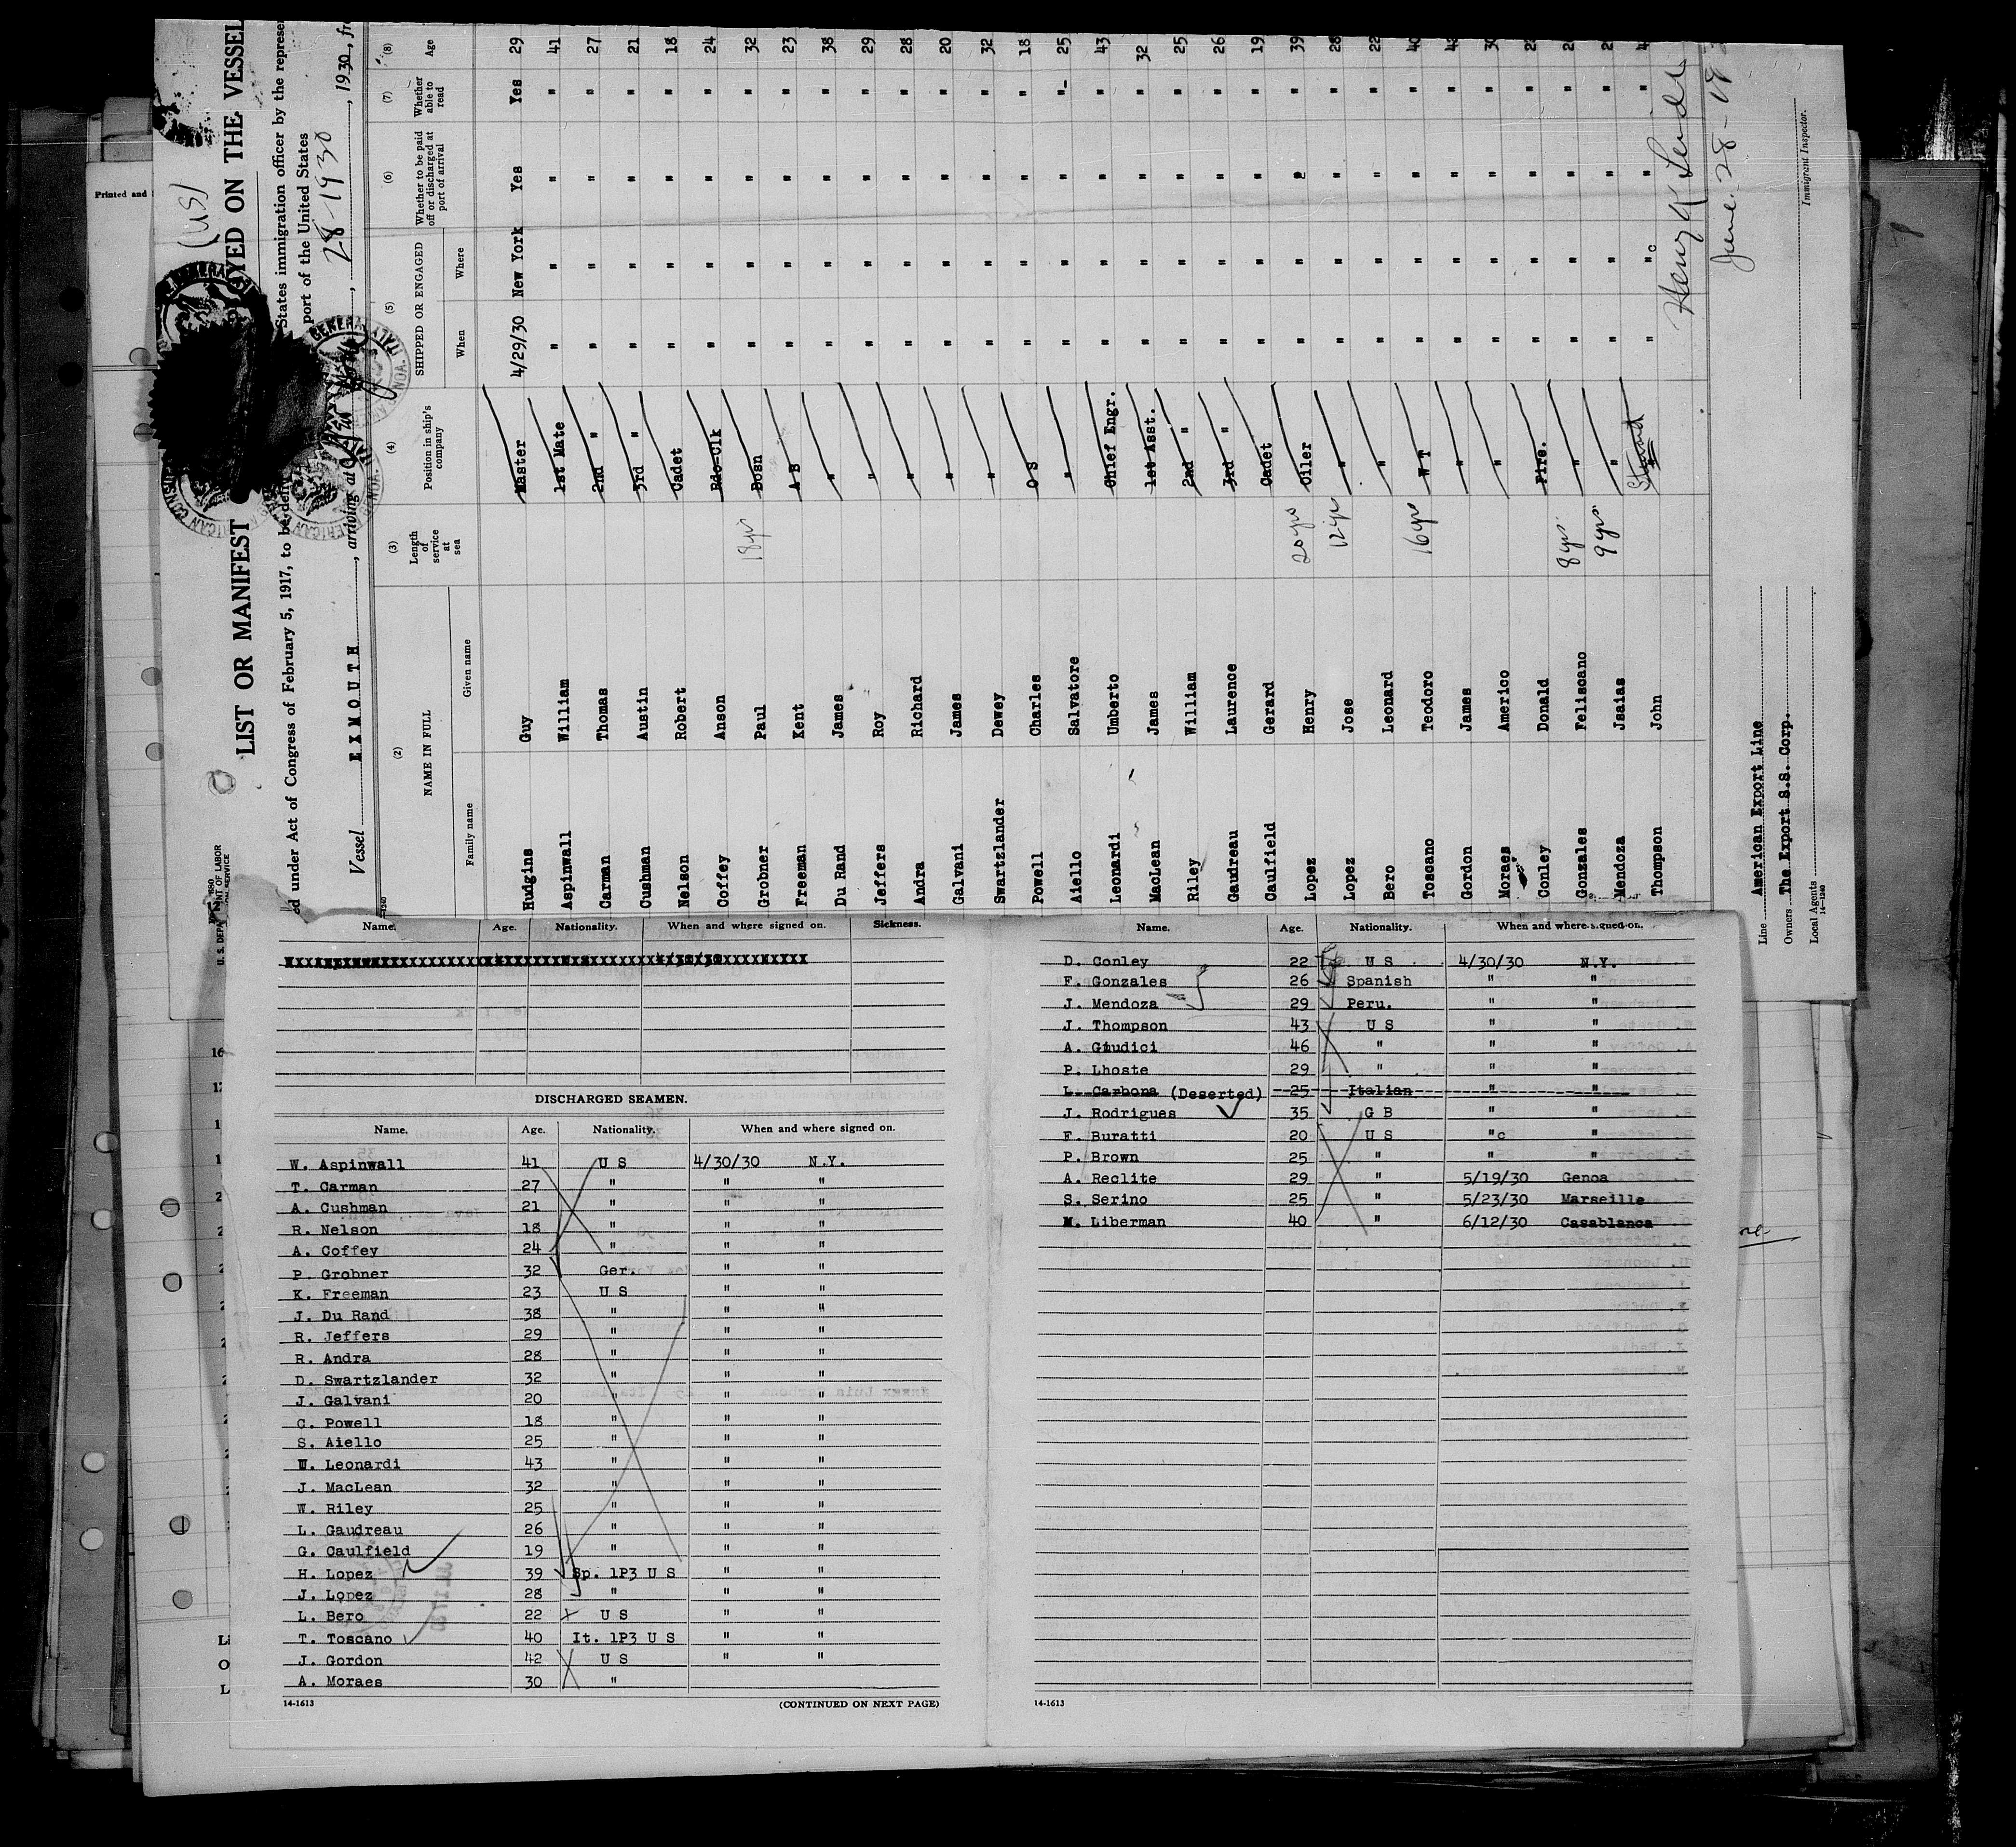 Printed and
(US)
LIST OR MANIFEST
OYED ON THE VESSEL
ed under Act of Congress of February 5, 1917, to be deliv
States immigration officer by the represen
port of the United States
Vessel EXMOUTH, arriving at
28-1930, 1930, fr
U. S. DEPARTMENT OF LABOR
(2) (3) (4) (5) (6) (7) (8)
NAME IN FULL Length of service at sea Position in ship's company SHIPPED OR ENGAGED Whether to be paid off or discharged at port of arrival Whether able to read Age
Family name Given name When Where
Hudgins Guy Master 4/29/30 New York Yes Yes 29
Aspinwall William 1st Mate " " " " 41
Carman Thomas 2nd " " " " " 27
Cushman Austin 3rd " " " " " 21
Nelson Robert Cadet " " " " 18
Coffey Anson Rdo Clk " " " " 24
Grobner Paul 18 yrs Bosn " " " " 32
Freeman Kent A B " " " " 23
Du Rand James " " " " " 38
Jeffers Roy " " " " " 29
Andra Richard " " " " " 28
Galvani James " " " " " 20
Swartzlander Dewey " " " " " 32
Powell Charles O S " " " " 18
Aiello Salvatore " " " " " 25
Leonardi Umberto Chief Engr. " " " " 43
MacLean James 1st Asst. " " " " 32
Riley William 2nd " " " " " 25
Gaudreau Laurence 3rd " " " " " 26
Caulfield Gerard Cadet " " " " 19
Lopez Henry 20 yrs Oiler " " " " 39
Lopez Jose 12 yrs " " " " " 28
Bero Leonard " " " " " 22
Toscano Teodoro 16 yrs W T " " " " 40
Gordon James " " " " " 42
Moraes Americo " " " " " 30
Conley Donald Fire. " " " "
Gonzales Feliscano 8 yrs " " " " "
Mendoza Jsaias 9 yrs " " " " "
Thompson John " " "c " "
June 28-19
Line American Export Line
Owners The Export S.S. Corp.
Local Agents
14-1240
Immigrant Inspector.
Name. Age. Nationality. When and where signed on. Sickness.
DISCHARGED SEAMEN.
Name. Age. Nationality. When and where signed on.
W. Aspinwall 41 U S 4/30/30 N.Y.
T. Carman 27 " " "
A. Cushman 21 " " "
R. Nelson 18 " " "
A. Coffey 24 " " "
P. Grobner 32 Ger. " "
K. Freeman 23 U S " "
J. Du Rand 38 " " "
R. Jeffers 29 " " "
R. Andra 28 " " "
D. Swartzlander 32 " " "
J. Galvani 20 " " "
C. Powell 18 " " "
S. Aiello 25 " " "
U. Leonardi 43 " " "
J. MacLean 32 " " "
W. Riley 25 " " "
L. Gaudreau 26 " " "
G. Caulfield 19 " " "
H. Lopez 39 Sp. 1P3 U S " "
J. Lopez 28 " " "
L. Bero 22 U S " "
T. Toscano 40 It. 1P3 U S " "
J. Gordon 42 U S " "
A. Moraes 30 "
14-1613 (CONTINUED ON NEXT PAGE)
Name. Age. Nationality. When and where signed on.
D. Conley 22 U S 4/30/30 N.Y.
F. Gonzales 26 Spanish " "
J. Mendoza 29 Peru. " "
J. Thompson 43 U S " "
A. Giudici 46 " " "
P. Lhoste 29 " " "
L. Carbona (Deserted) 25 Italian " "
J. Rodrigues 35 G B " "
F. Buratti 20 U S "c "
P. Brown 25 " " "
A. Reclite 29 " 5/19/30 Genoa
S. Serino 25 " 5/23/30 Marseille
M. Liberman 40 " 6/12/30 Casablanca
14-1613